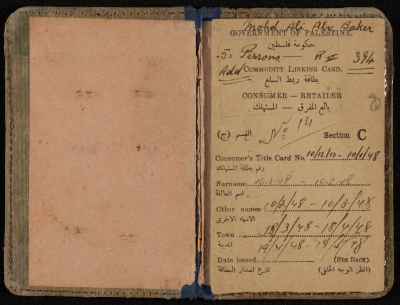 Mohd Ali Abu Baker
GOVERNMENT OF PALESTINE.
حكومة فلسطين
5 Persons — R II 394
Add COMMODITY LINKING CARD.
بطاقة ربط السلع
CONSUMER — RETAILER
بائع المفرق — المستهلك
القسم (ج) No 14 Section C
Consumer's Title Card No. 10/12/17 - 10/1/48
رقم بطاقة المستهلك
Surname 10.1.48 - 10.2.48
اسم العائلة
Other names 10/2/48 - 10/3/48
الاسماء الاخرى
Town 18/3/48 - 18/4/48
المدينة 19/4/48 - 19/5/48
Date issued (SEE BACK).
تاريخ اصدار البطاقة (انظر الوجه الخلفي)